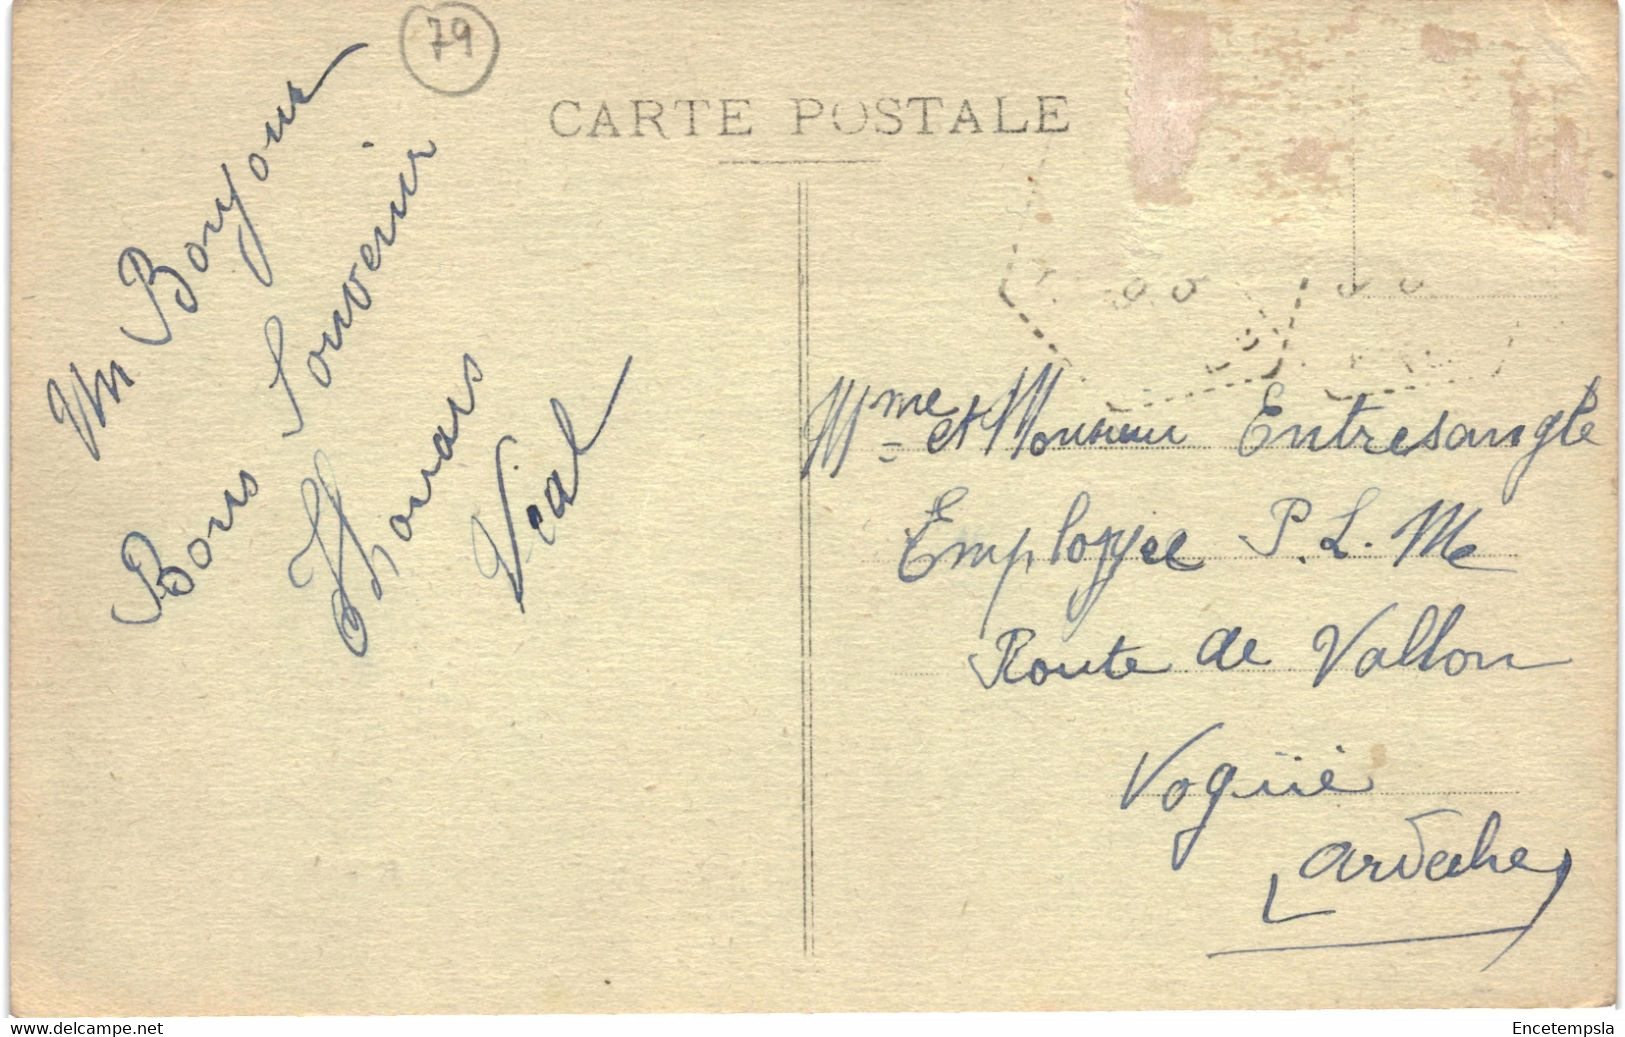 79
CARTE POSTALE
Un Bonjour
Bons Souvenir
Thouars
Vial
Mme et Monsieur Entresangle
Employée P. L. M
Route de Vallon
Vogüé
(Ardèche)
www.delcampe.net
Encetempsla